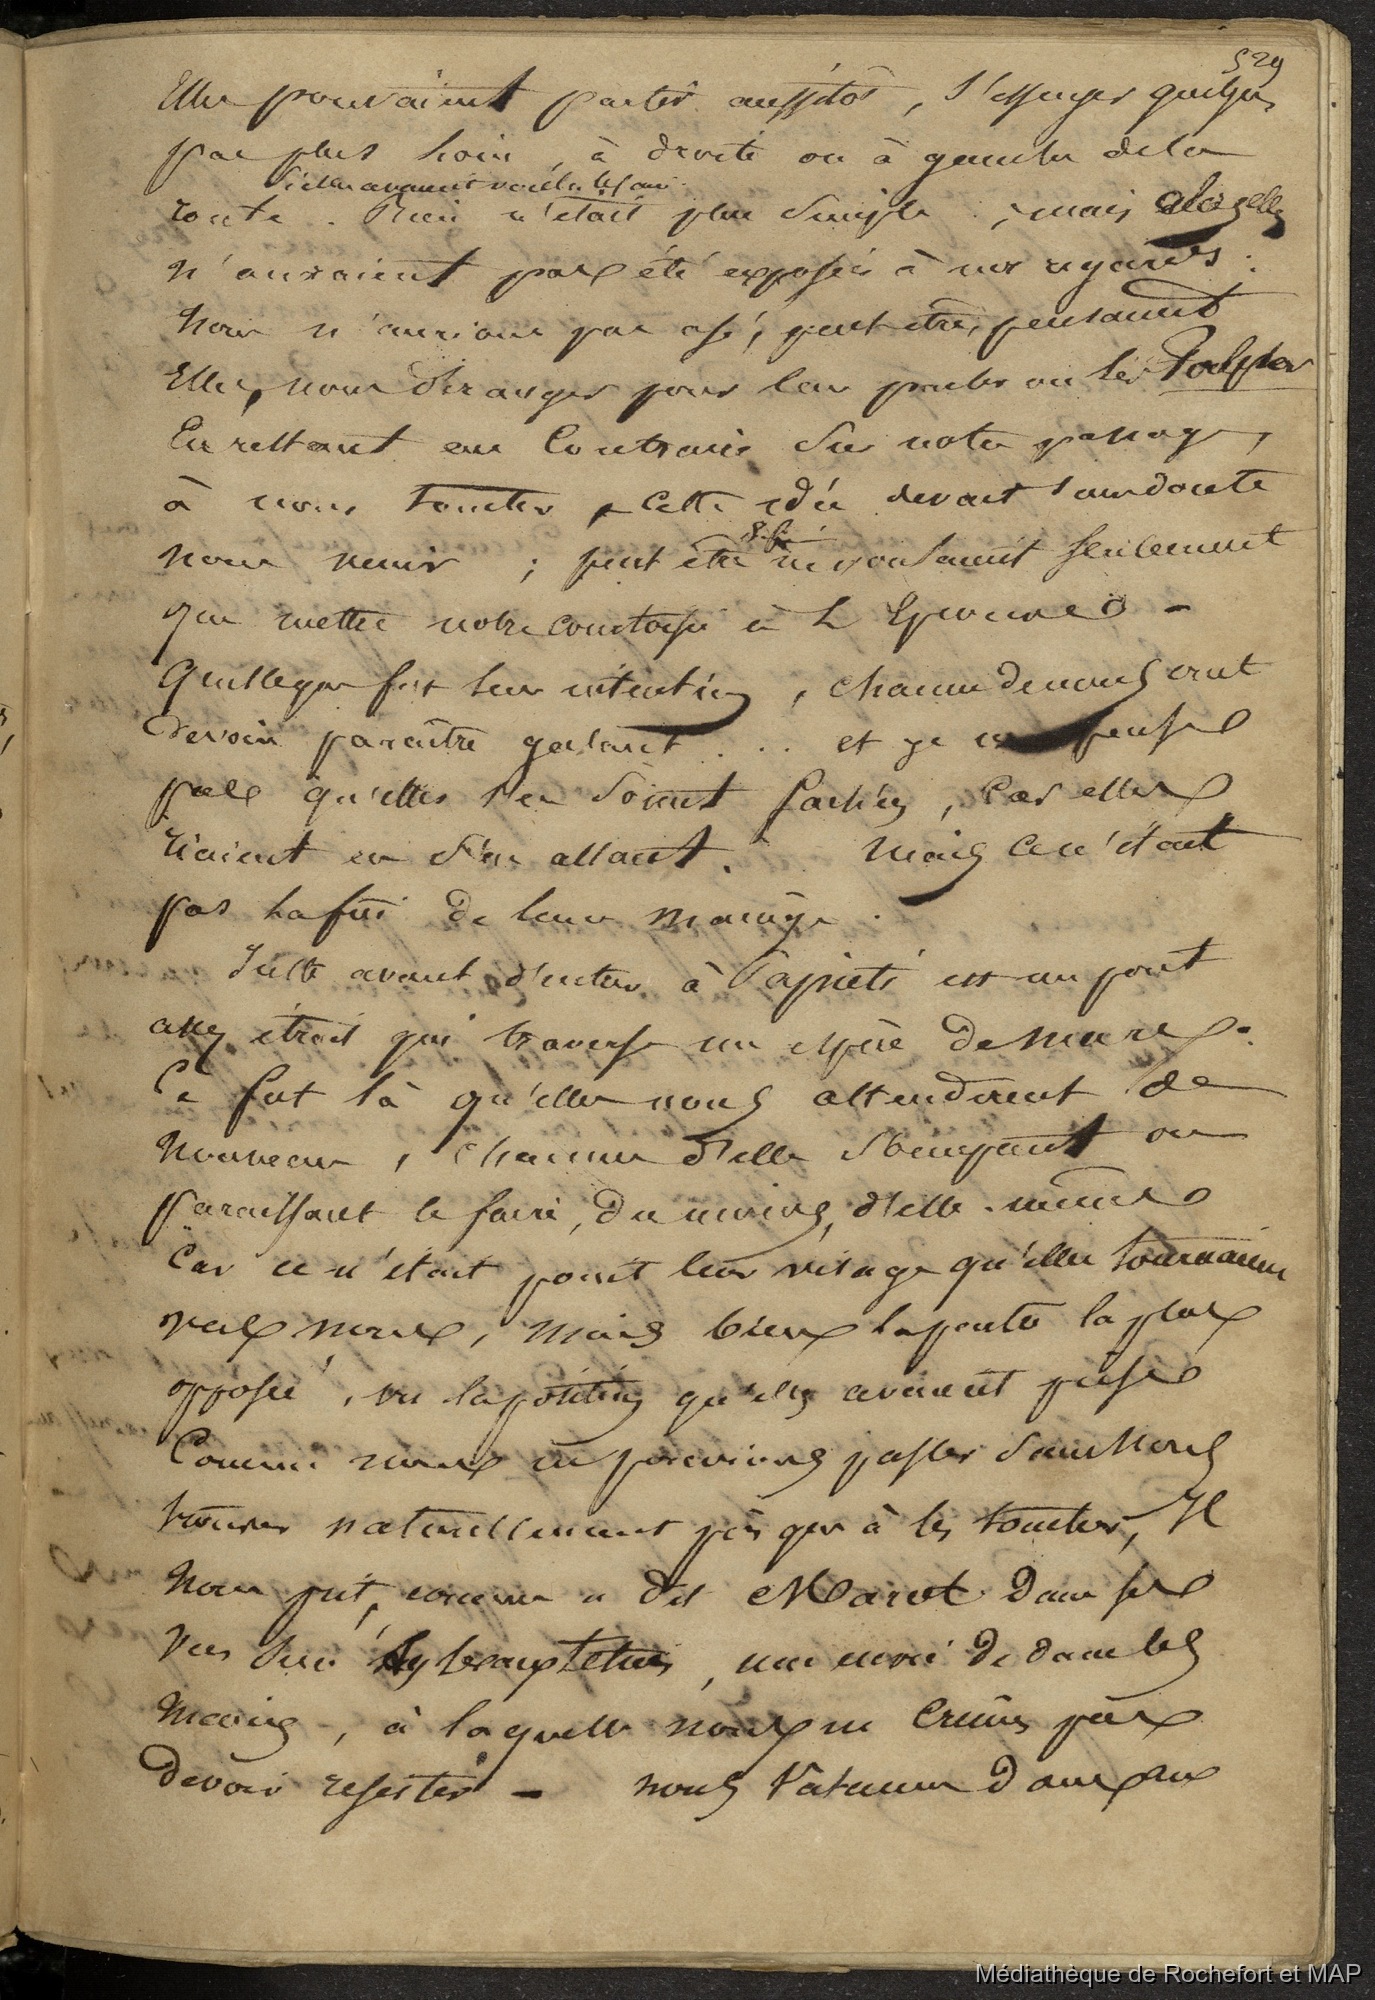 529
Elles pouvaient partir aussitôt, s'essuyer quelques
pas plus loin, à droite ou à gauche de la
si elles avaient voulu le faire
route. Rien n'était plus simple ; mais alors elles
n'auraient pas été exposées à nos regards :
nous n'aurions pas osé, peut être, pensaient
Elles, nous déranger pour leur parler ou les Palper
En restant au Contraire sur notre passage,
à nous toucher, cette idée devait sans doute
nous venir ; peut être ne voulaient seulement
que mettre notre courtoisie à L'Epreuve -
Quelleque fut leur intention, chacun de nous crut
devoir paraître galant ... et je ne pense
pas qu'elles s'en soient fachées, Car elles
riaient en s'en allant. Mais ce n'était
pas la fin de leur manège.
Juste avant d'entrer à Papieté est un pont
assez étroit qui traverse une espèce de mare.
Ce fut là qu'elles nous attendirent de
nouveau, chacune d'elle s'occupant ou
paraissant le faire, du moins, d'elle-même
Car ce n'était point leur visage qu'elles tournaient
vers nous, mais bien la partie la plus
opposée, vu la position qu'elles avaient prise
Comme nous ne pouvions passer sans nous
trouver naturellement presque à les toucher, Il
nous prit, comme a dit Marot dans ses
Vers sur les beaux Tetins, une envie dedans les
Mains, à laquelle nous ne crûmes pas
devoir resister - nous